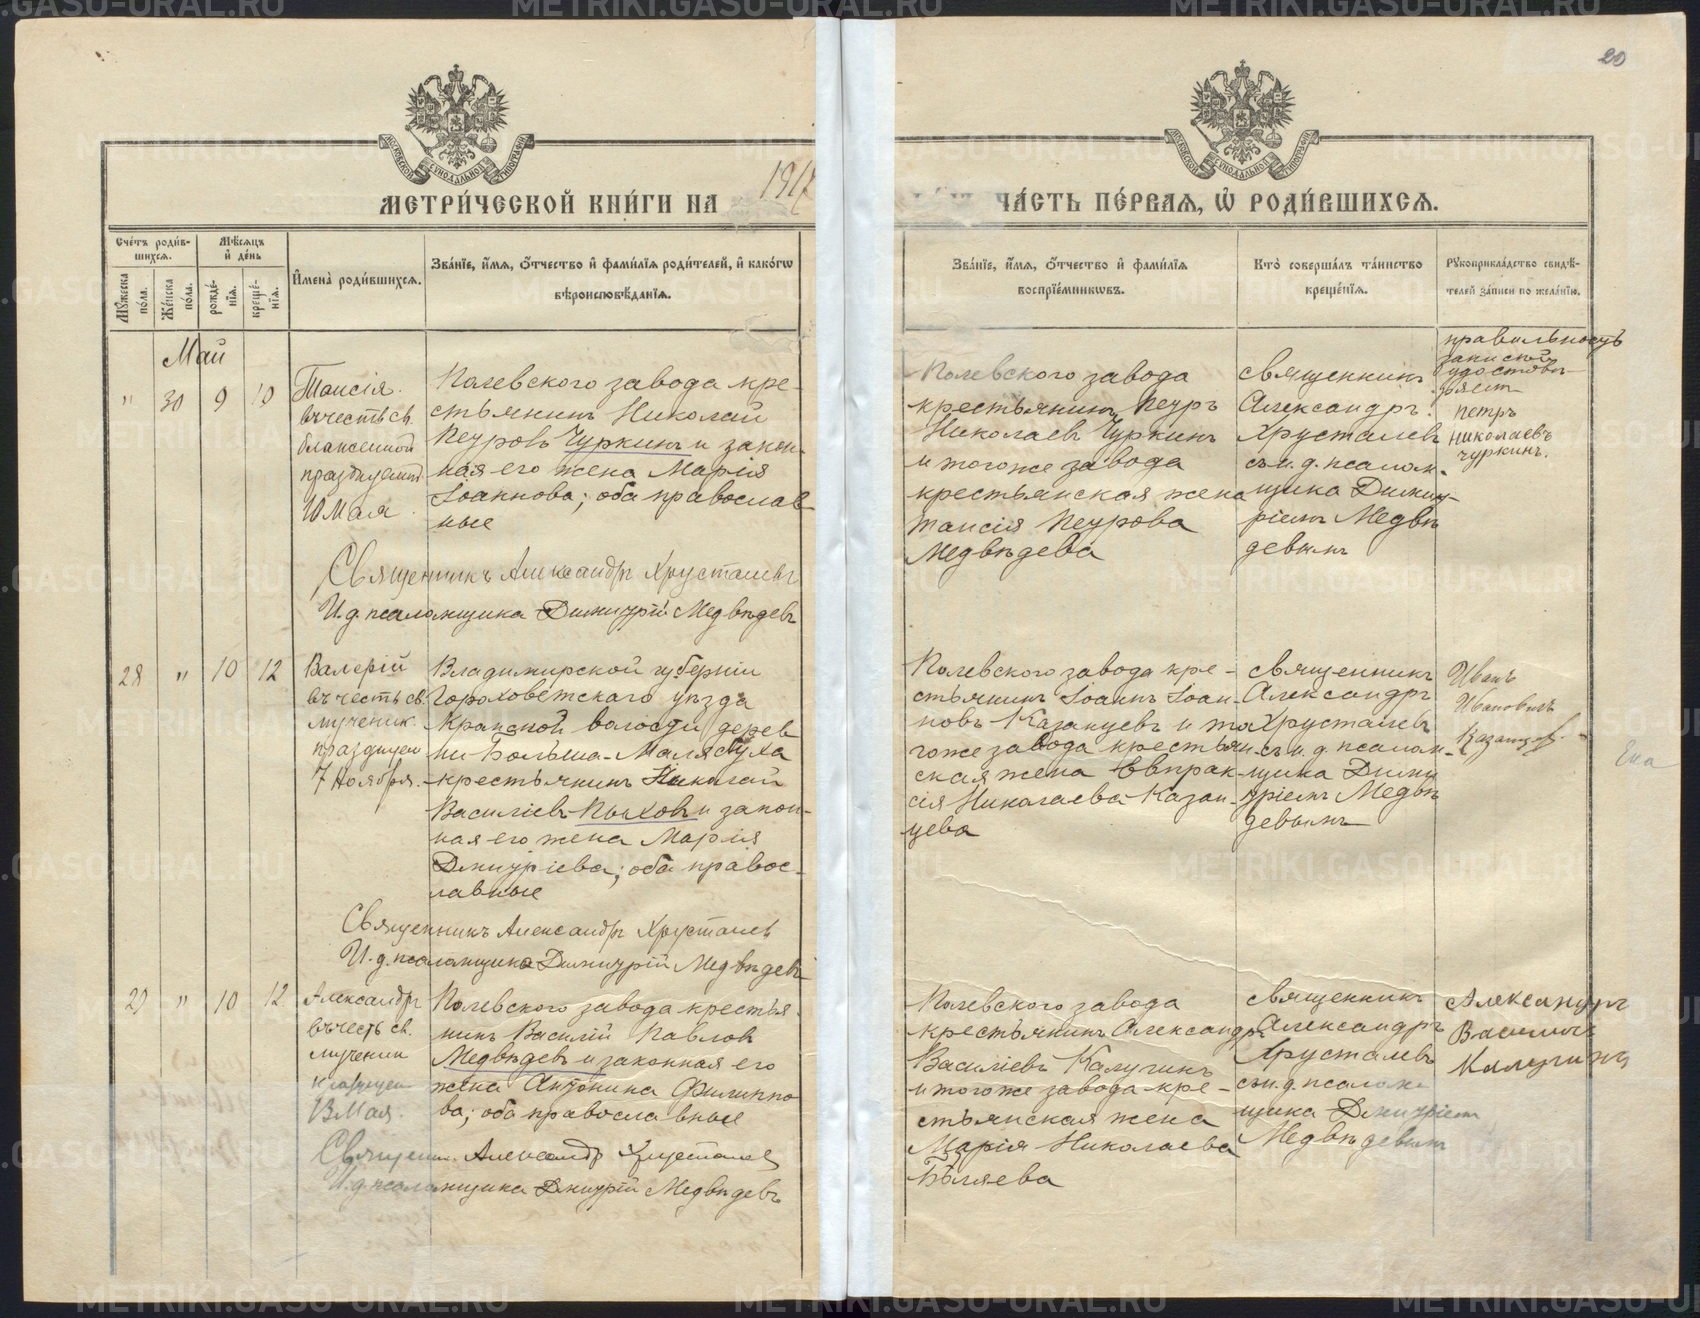 20
МОСКОВСКОЙ СУНОДАЛЬНОЙ ТИПОГРАФІИ
МОСКОВСКОЙ СУНОДАЛЬНОЙ ТИПОГРАФІИ
МЕТРИ́ЧЕСКОЙ КНИ́ГИ НА 1917
ЧА́СТЬ ПЕ́РВАЯ, Ѡ҆ РОДИ́ВШИХСЯ.
Сче́тъ роди́в-
шихся.
Мѣ́сяцъ
и҆ де́нь
Мꙋ́жеска
по́ла.
Же́нска
по́ла.
рожде́-
нїя.
креще́-
нїя.
И҆мена̀ роди́вшихся.
Зва́нїе, и҆́мя, ѻ҆́тчество и҆ фами́лїя роди́телей, и҆ како́гѡ
вѣроисповѣ́данїя.
Зва́нїе, и҆́мя, ѻ҆́тчество и҆ фами́лїя
воспрїе́мникѡвъ.
Кто̀ соверша́лъ та́инство
креще́нїя.
Рꙋкоприкла́дство свидѣ́-
телей за́писи по жела́нїю.
Май
" 30 9 10
Таисія.
въ честь св.
блаженной
празднуемой
10 Мая.
Полевского завода кре-
стьянинъ Николай
Петровъ Чуркинъ и закон-
ная его жена Марія
Іоаннова; оба православ-
ные
Священникъ Александръ Хрусталевъ
И. д. псаломщика Димитрій Медвѣдевъ
Полевского завода
крестьянинъ Петръ
Николаевъ Чуркинъ
и того же завода
крестьянская жена
Таисія Петрова
Медвѣдева
Священникъ
Александръ
Хрусталевъ
съ и. д. псалом-
щика Димит-
ріемъ Медвѣ
девымъ
правильность
записи
удостовѣ-
ряетъ
петръ
николаевъ
чуркинъ.
28 " 10 12
Валерій
въ честь св.
мученик.
празднуем
7 Ноября.
Владимирской губерніи
Гороховетскаго уѣзда
волости дерев
ни Больша-
крестьянинъ Николай
Василіевъ Пыховъ и закон-
ная его жена Марія
Димитріева; оба правос-
лавные
Священникъ Александръ Хрусталевъ
И. д. псаломщика Димитрій Медвѣдевъ
Полевского завода кре-
стьянинъ Іоаннъ Іоан-
новъ Казанцевъ и то
гоже завода крестьян-
ская жена Евпрак-
сія Николаева Казан-
цева
Священникъ
Александръ
Хрусталевъ
съ и. д. псалом-
щика Димит
ріемъ Медвѣ
девымъ
Иванъ
Ивановичъ
Казанцев
29 " 10 12
Александръ
въ честь св.
мученик
празднуем
13 Мая.
Полевского завода крестья-
нинъ Василій Павлов
Медвѣдевъ и законная его
жена Антонина Филиппо
ва; оба православные
Священн. Александръ Хрусталев
И. д. псаломщика Димитрій Медвѣдевъ
Полевского завода
крестьянинъ Александръ
Василіевъ Калугинъ
и того же завода кре-
стьянская жена
Марія Николаева
Бѣляева
Священникъ
Александръ
Хрусталевъ
съ и. д. псалом
щика Димитріем
Медвѣдевымъ
Александръ
Василичъ
Калугинъ
METRIKI.GASO-URAL.RU